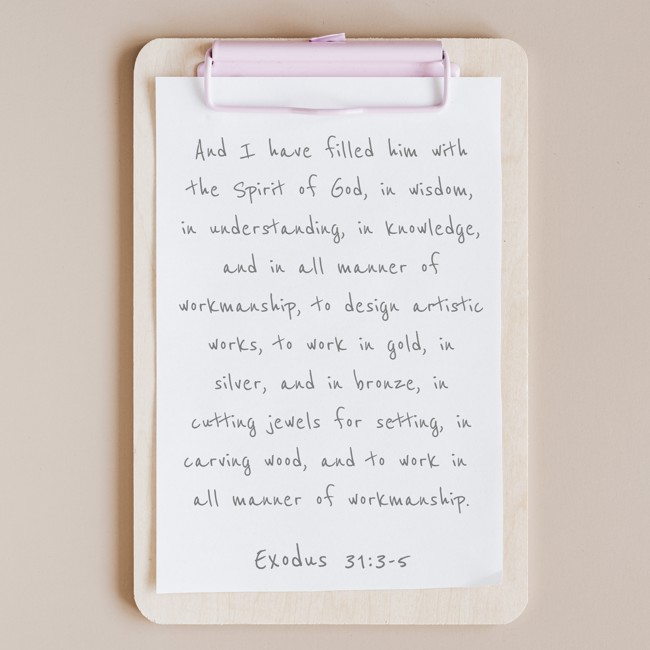 And I have filled him with
the Spirit of God, in wisdom,
in understanding, in knowledge,
and in all manner of
workmanship, to design artistic
works, to work in gold, in
silver, and in bronze, in
cutting jewels for setting, in
carving wood, and to work in
all manner of workmanship.
Exodus 31:3-5